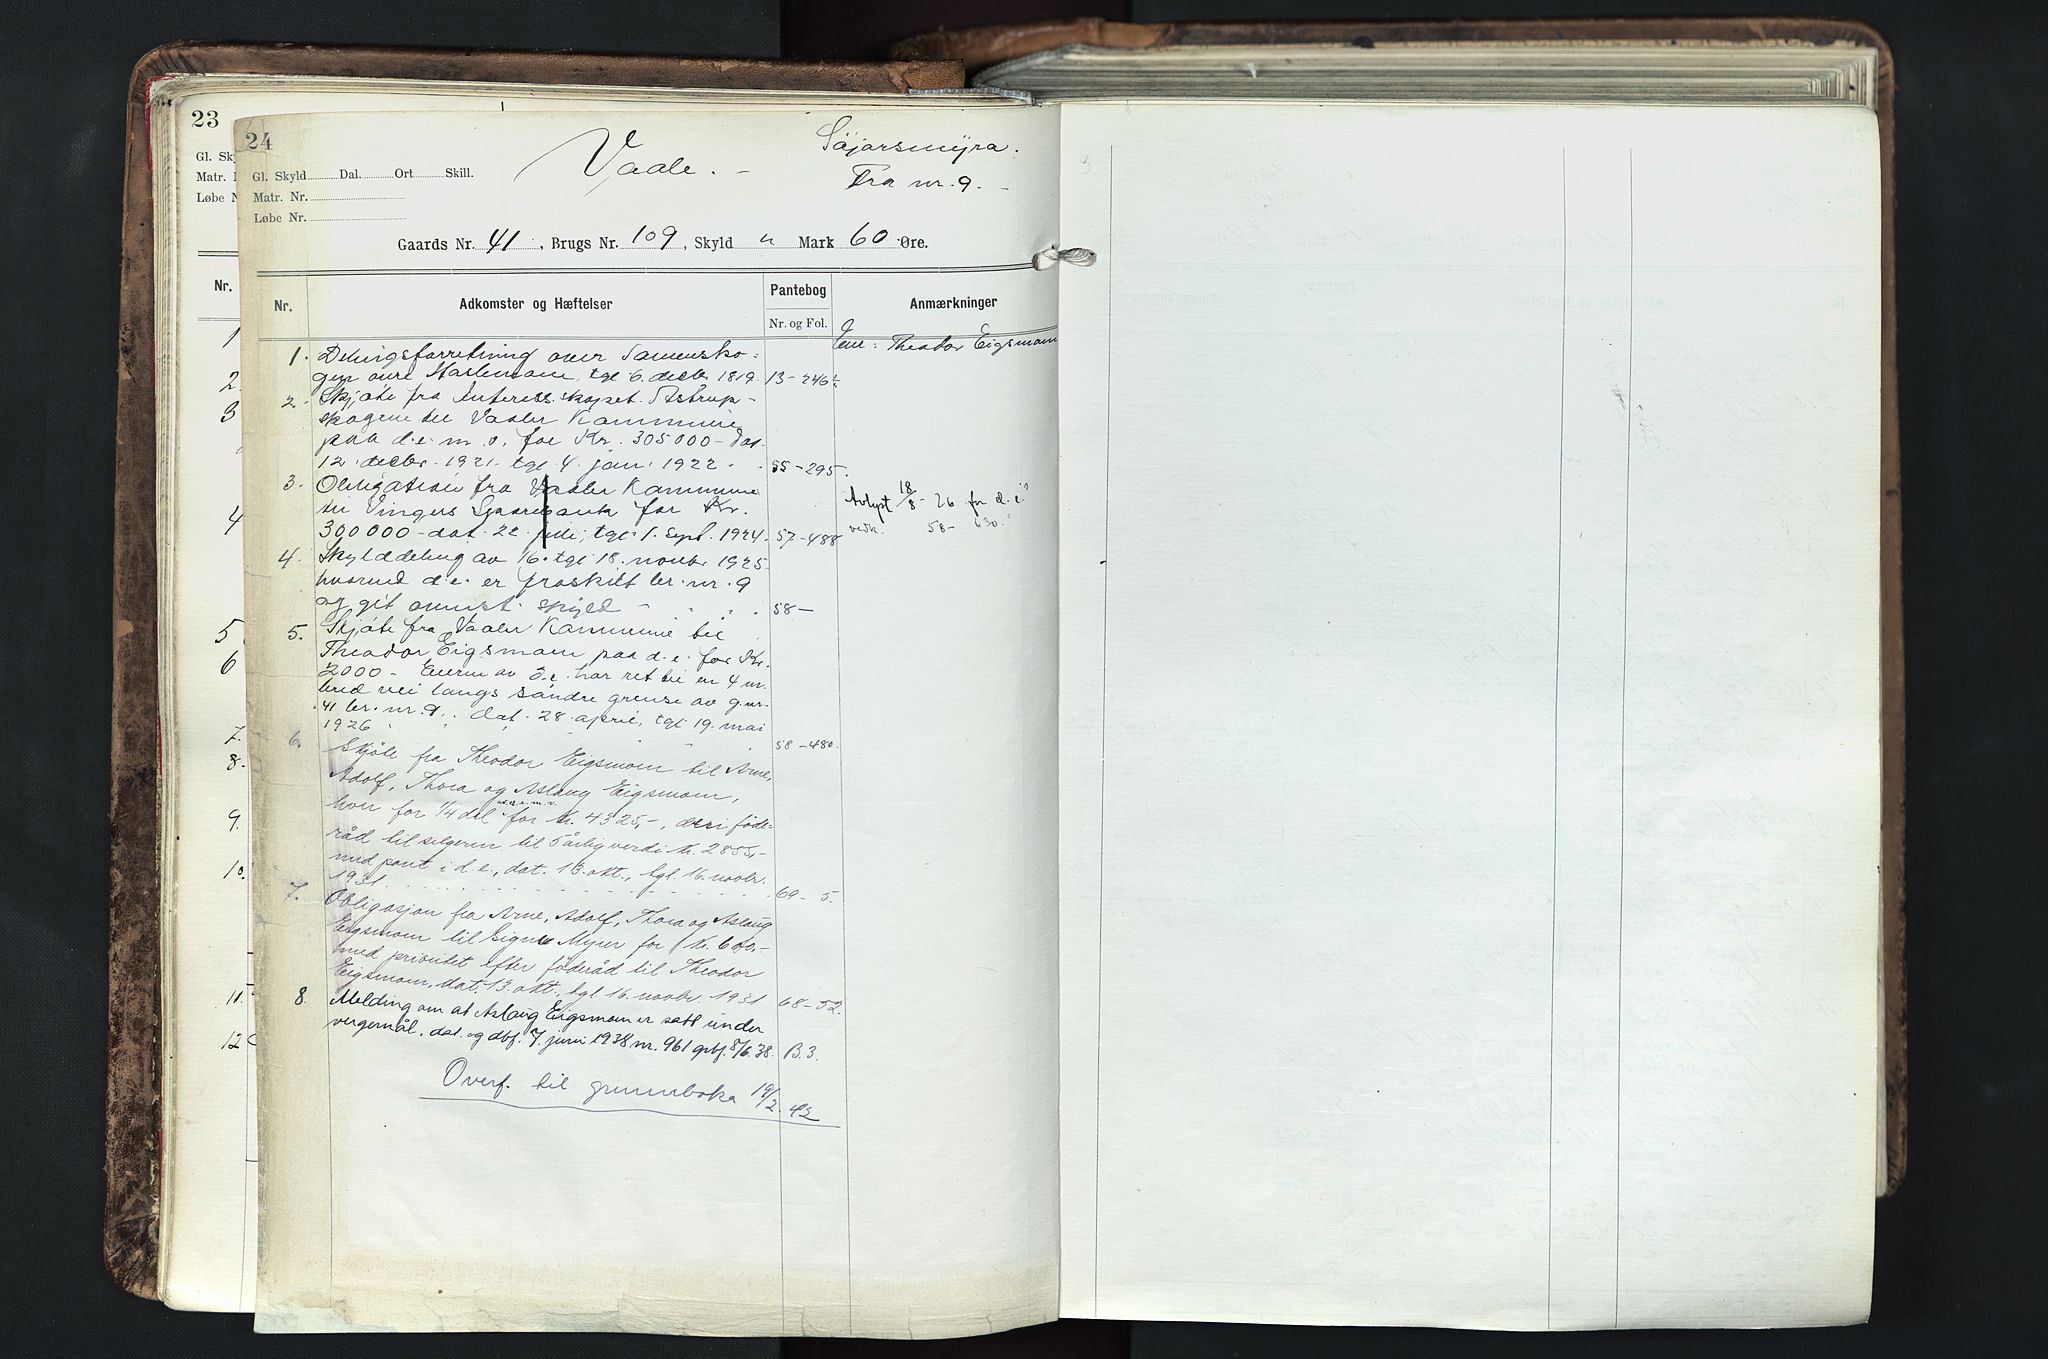 23
Gl. Sky
Matr. N
Løbe N
Nr.
1
2.
3
4
5
6
7.
8.
9.
10.
11.
12
24
Gl. Skyld Dal. Ort Skill.
Matr. Nr.
Løbe Nr.
Vaale. -
Søjarsmyra.
Fra nr. 9. -
Gaards Nr. 41, Brugs Nr. 109, Skyld " Mark 60 Øre.
Nr. Adkomster og Hæftelser Pantebog Anmærkninger
Nr. og Fol.
Eier: Theodor Eigsmoen
1. Delingsforretning over
tgl. 6. decbr. 1819. 13-246
2. Skjøte fra Interesseskapet Astrup-
skogene til Vaaler Kommune
paa d.e. m. v. for Kr. 305000 - dat.
12. decbr. 1921. tgl. 4. jan. 1922. 55-295.
3. Obligation fra Vaaler Kommune
til Vingers Sparebank for Kr.
300000 - dat. 22. juli, tgl. 1. sept. 1924. 57-488
Avlyst 18/8-26 for d.e.s
vedk. 58-630.
4. Skylddeling av 16. tgl. 18. novbr 1925
hvorved d.e. er fraskilt br. nr. 9
og git anmst. skyld - 58-
5. Skjøte fra Vaaler Kommune til
Theodor Eigsmoen paa d.e. for Kr.
2000 - Eieren av d.e. har ret til en 4 m.
bred vei langs søndre grense av g.nr.
41 br. nr. 9. dat. 28. april, tgl. 19. mai
1926 58-480.
6. Skjøte fra Theodor Eigsmoen til Arne,
Adolf, Thora og Aslaug Eigsmoen,
hver for 1/4 del av d.e.m.v. for kr. 4325,-, deri føde-
råd til selgeren til 5 årlig verdi kr. 2855,-
med pant i d.e., dat. 13. okt., tgl. 16. novbr.
1931. 69-5.
7. Obligasjon fra Arne, Adolf, Thora og Aslaug
Eigsmoen til Signe Myrer for kr. 600,-
med prioritet efter föderåd til Theodor
Eigsmoen, dat. 13. okt., tgl. 16. novbr. 1931 68-52.
8. Melding om at Aslaug Eigsmoen er satt under
vergemål. dat. og dbf. 7. juni 1938 nr. 961 grbf. 8/6.38. B.3.
Overf. til grunnboka 19/2. 42